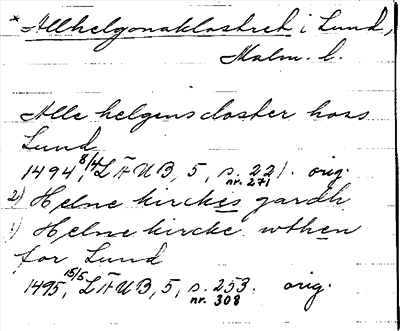 *Allhelgonaklostret i Lund,
Malm. l.
Alle helgens closter hoss
Lund
1494 8/4, LÄUB, 5, s. 221. orig.
nr. 271
2) Helne kirckes gardh
1) Helne kircke wthen
for Lund
1495 15/5, LÄUB, 5, s. 253. orig.
nr. 308